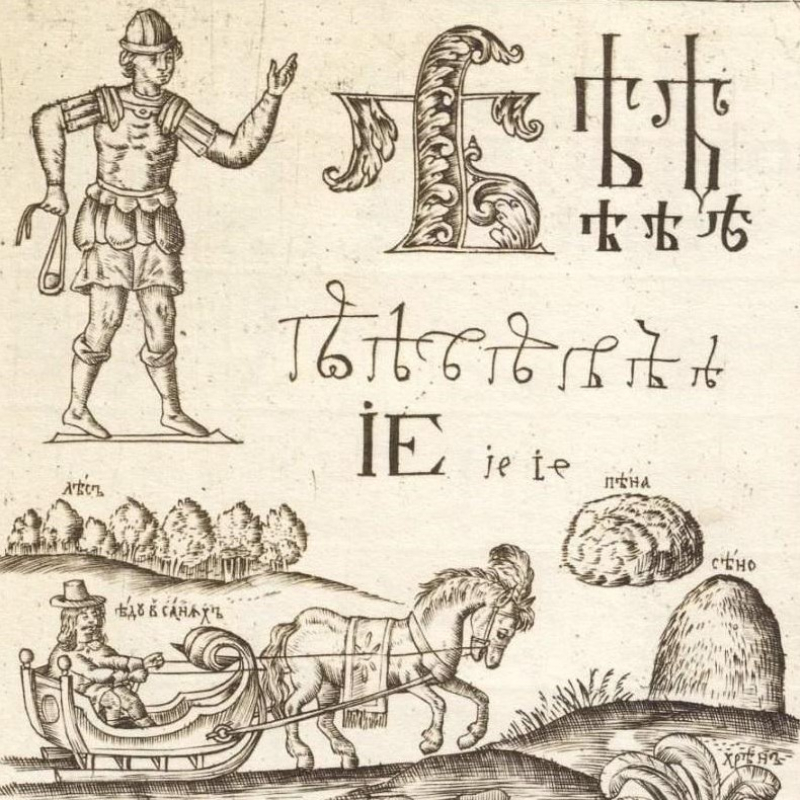 Ѣ Ѣ Ѣ
ѣ ѣ ѣ
ѣ ѣ ѣ ѣ ѣ ѣ ѣ
ІЕ іе іе
лѣ́съ
пѣ́на
сѣ́но
ѣ́ду в са́нѧхъ
хрѣ́нъ